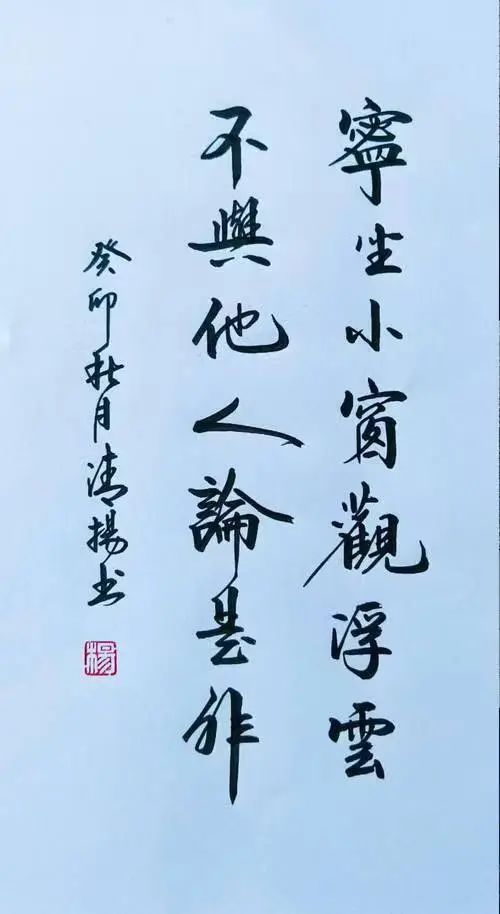 寧坐小窗觀浮雲
不與他人論是非
癸卯秋月清揚書
楊